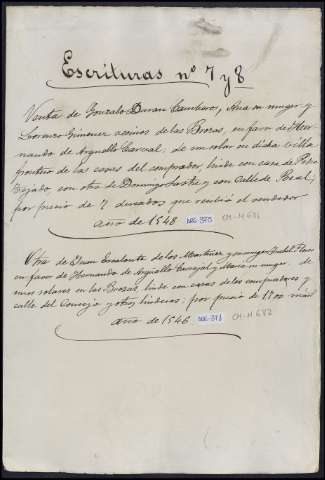 Escrituras nº 7 y 8
Venta de Gonzalo Duran, Ana su mujer y
Lorenzo Gimenez vecinos de las Brozas, en favor de Her-
nando de Arguello Carvajal, de un solar en dicha villa
frontero de las casas del comprador, linde con casa de Pedro
con otra de Domingo y con Calle de Real,
por precio de 7 ducados que recibió el vendedor
año de 1548
Otra de Juan de los Martinez y su mujer Isabel
en favor de Hernando de Arguello Carvajal y María su mujer, de
unos solares en las Brozas, linde con casas de los compradores y
calle del Concejo y otros linderos; por precio de 1700
año de 1546